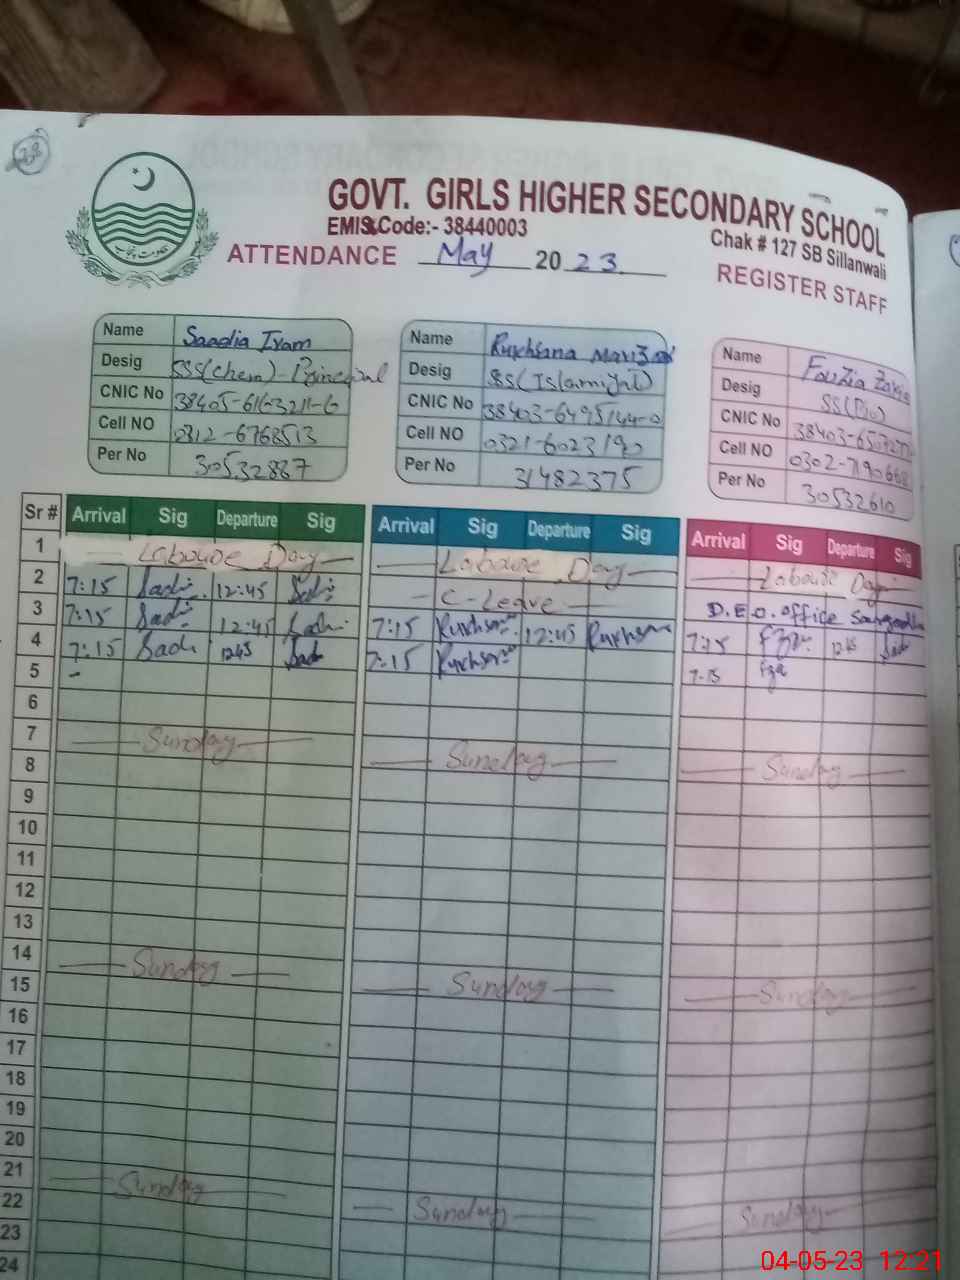 38
حکومت پنجاب
GOVT. GIRLS HIGHER SECONDARY SCHOOL
EMIS Code:- 38440003
Chak # 127 SB Sillanwali
ATTENDANCE May 2023 REGISTER STAFF
Name Saadia Iram
Desig SSS(Chem)-Principal
CNIC No 38405-6163211-6
Cell NO 0312-6768513
Per No 30532887
Name Rukhsana
Desig SS(Islamiyat)
CNIC No 38403-6495144-0
Cell NO 0321-6023190
Per No 31482375
Name Fouzia
Desig SS(Bio)
CNIC No
Cell NO
Per No 30532610
Sr # Arrival Sig Departure Sig Arrival Sig Departure Sig Arrival Sig Departure Sig
1 Laboure Day Laboure Day Laboure Day
2 7:15 Sadi 12:45 Sadi C-Leave D.E.O. office
3 7:15 Sadi 12:45 Sadi 7:15 Rukhsana 12:45 Rukhsana 7:15 12:45
4 7:15 Sadi 1245 Sadi 7:15 Rukhsana 7:15
5
6
7 Sunday Sunday Sunday
8
9
10
11
12
13
14 Sunday Sunday Sunday
15
16
17
18
19
20
21 Sunday Sunday Sunday
22
23
24
04-05-23 12:21